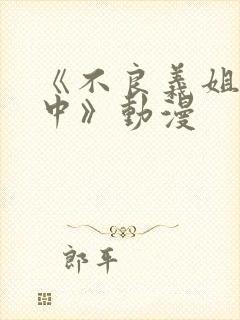 《不良義姐
中》動漫
郎平